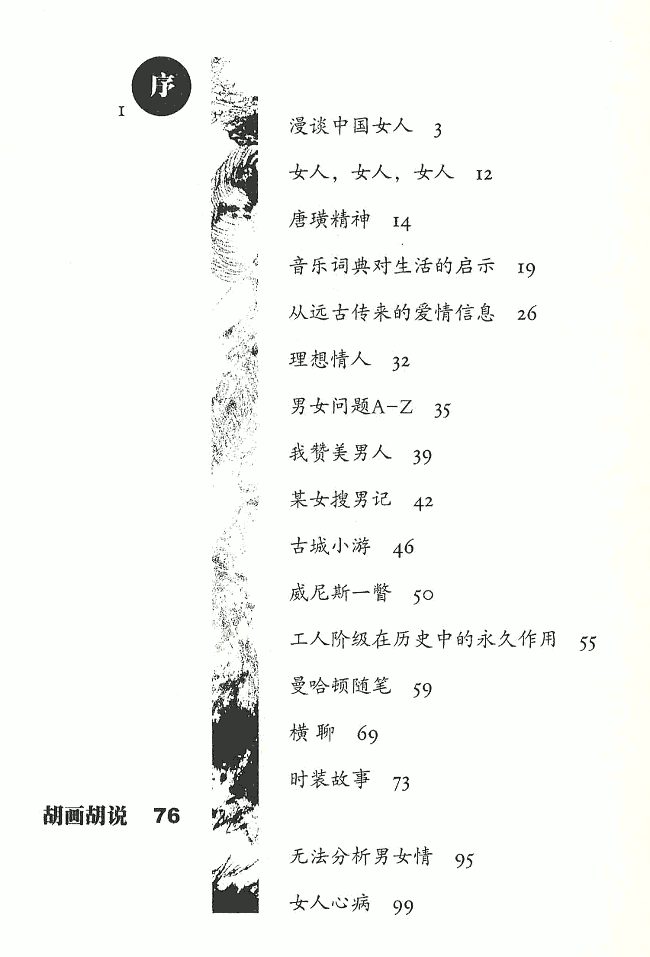 序
1
漫谈中国女人 3
女人，女人，女人 12
唐璜精神 14
音乐词典对生活的启示 19
从远古传来的爱情信息 26
理想情人 32
男女问题A-Z 35
我赞美男人 39
某女搜男记 42
古城小游 46
威尼斯一瞥 50
工人阶级在历史中的永久作用 55
曼哈顿随笔 59
横聊 69
时装故事 73
胡画胡说 76
无法分析男女情 95
女人心病 99